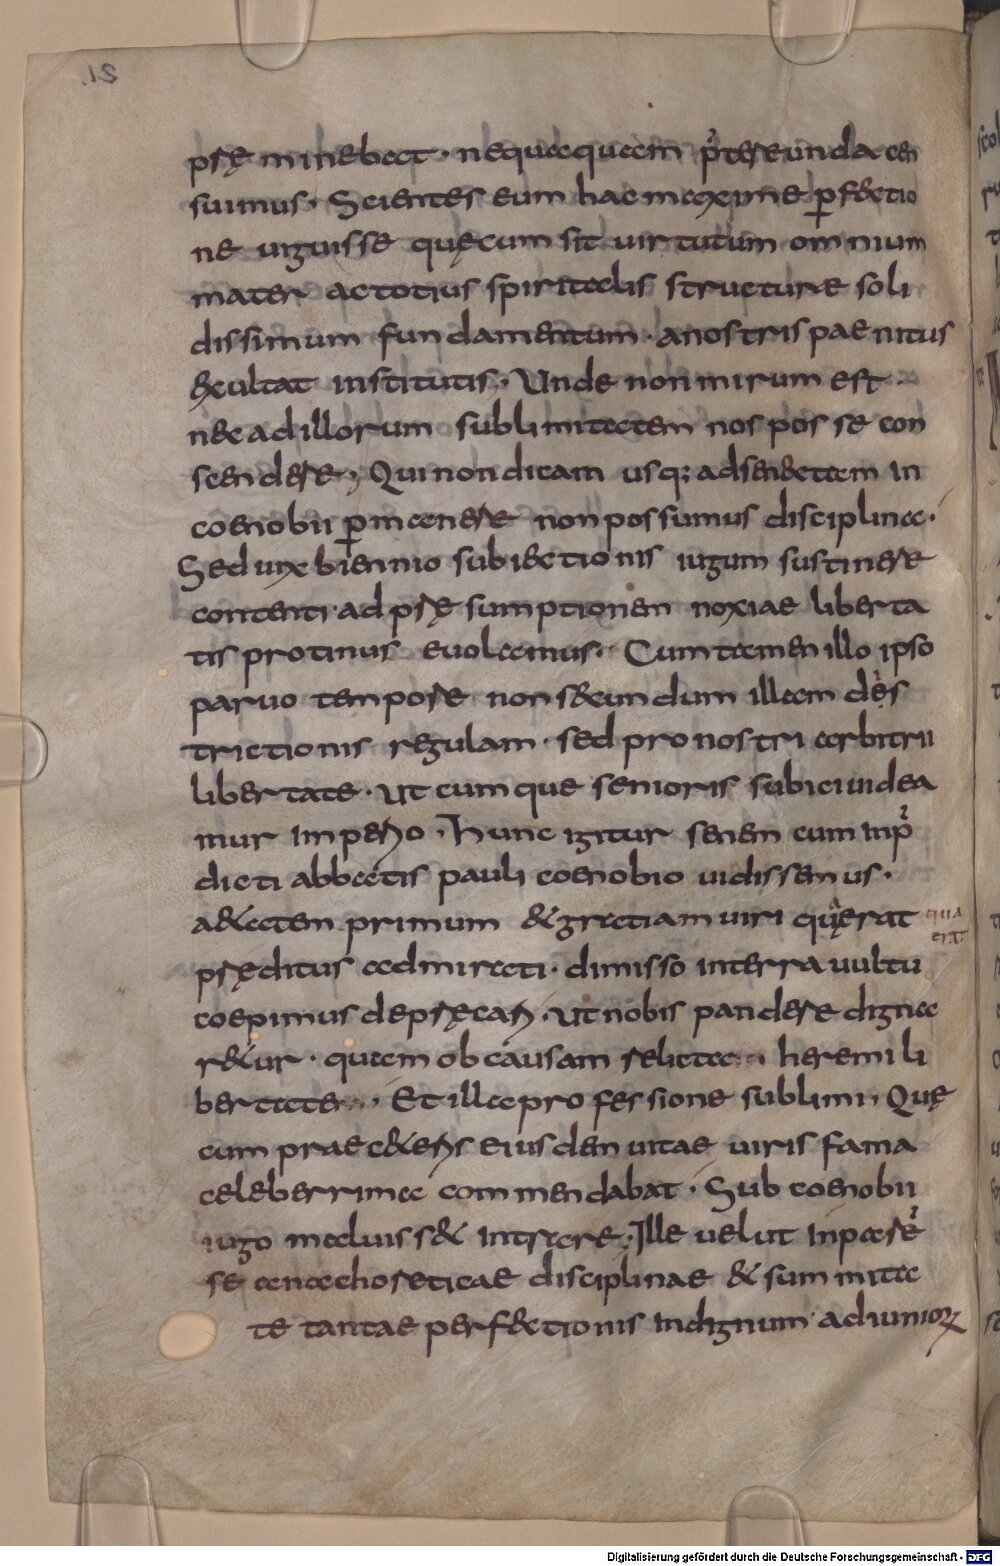 21.
pręminebat · nequaquam p̾tereunda cen
suimus · Scientes eum hac maxime ꝑfectio
ne uiguisse quęcum sit uirtutum omnium
mater ac totius spiritalis structurę soli
dissimum fundamentum · a nostris paenitus
exultat institutis · Unde non mirum est ·
nec ad illorum sublimitatem nos posse con
scendere ; Qui non dicam usq; ad senectam in
coenobii ꝑmanere non possumus disciplina ·
Sed uix biennio subiectionis iugum sustinere
contenti · ad pręsumptionen noxiae liberta
tis protinus euolamus · Cum tamen illo ipso
paruo tempore non secundum illam dęs
trictionis regulam · sed pro nostri arbitrii
libertate · ut cumque senioris subici uidea
mur imperio · hunc igitur senem cum inp̾
dicti abbatis pauli coenobio uidissemus ·
a&atem primum & gratiam uiri qua erat
quia
erat
pręditus admirati · dimisso in terra uultu
coepimus depręcari · ut nobis pandere digna
r&ur · quam ob causam relicta heremi li
bertate · Et illa professione sublimi · Quę
eum prae c&eris eiusdem uitae uiris fama
celeberrima commendabat · Sub coenobii
iugo maluiss& intrare · Ille uelut inpare̾
se anachoreticae disciplinae & summita
te tantae perfectionis indignum · ad iunioꝝ
Digitalisierung gefördert durch die Deutsche Forschungsgemeinschaft - DFG